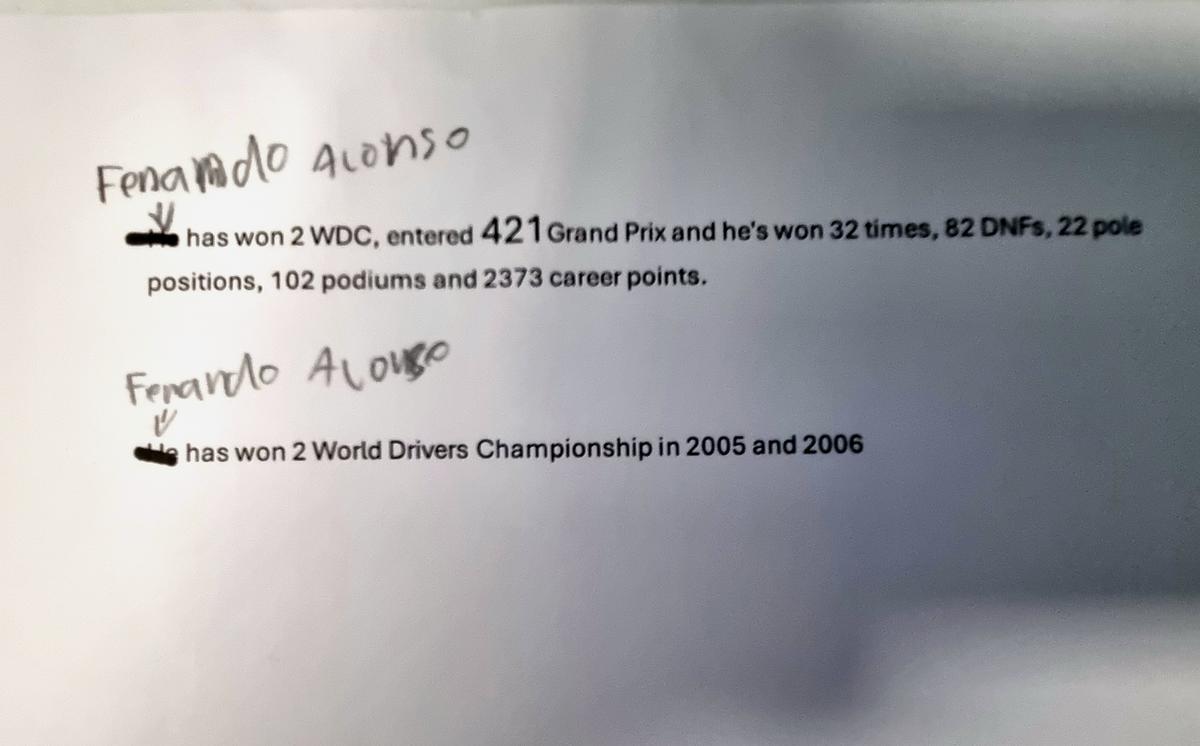 Fenarndo Alonso
He has won 2 WDC, entered 421 Grand Prix and he's won 32 times, 82 DNFs, 22 pole
positions, 102 podiums and 2373 career points.
Fenarndo Alonso
He has won 2 World Drivers Championship in 2005 and 2006